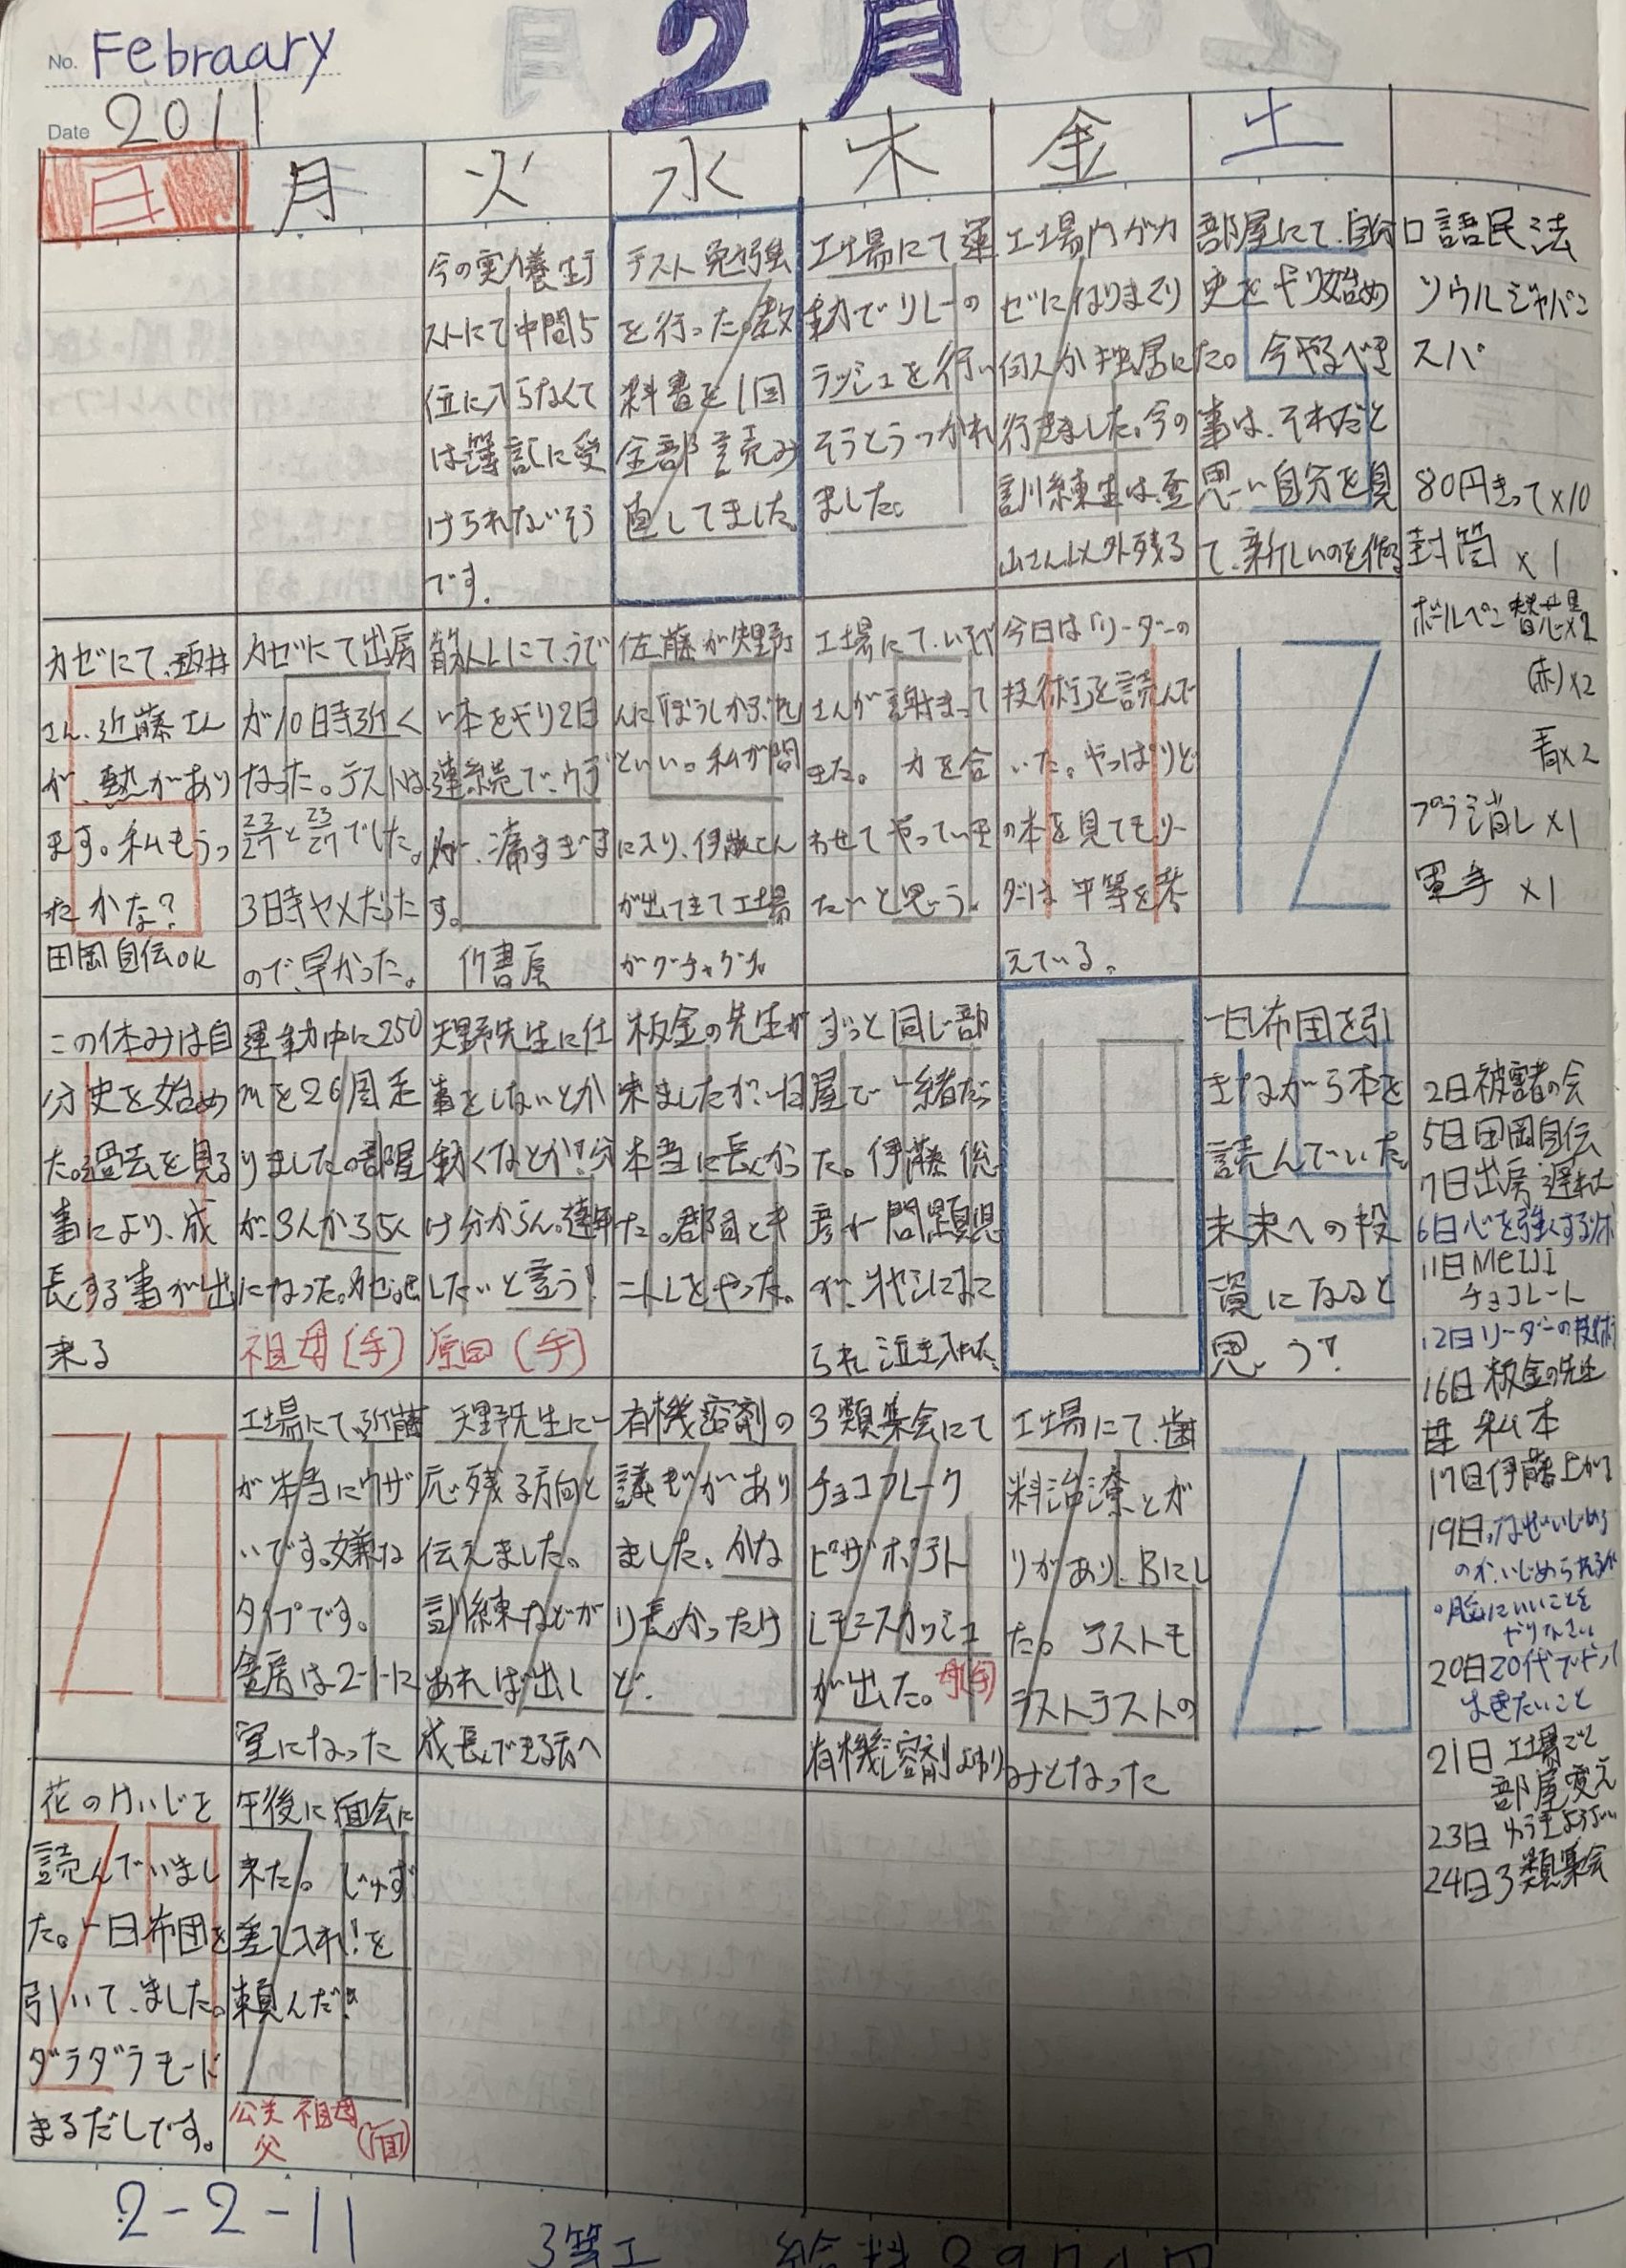 No. Febraary
2月
Date 2011
日 月 火 水 木 金 土
今の実力養生テ
ストにて中間5
位に入らなくて
は簿記に受
けられないそう
です.
テスト勉強
を行った。教
科書を1回
全部読み
直してました。
工場にて運
動でリレーの
ラッシュを行い
そうとうつかれ
ました。
工場内がカ
ゼになりまくり
何人か独居に
行きました。今の
訓練生は、
山さん以外残る
部屋にて、自分
史をやり始め
た。今やるべき
事は、それだと
思い自分を見
て、新しいのを作る
口語民法
ソウルジャパン
スパ
80円きって×10
封筒 ×1
ボールペン替芯黒×2
(赤)×2
青×2
プラ消し×1
軍手 ×1
カゼにて、坂井
さん、近藤さん
が、熱があり
ます。私もうつっ
たかな?
田岡自伝OK
カゼにて出房
が10時近く
なった。テストは
23/27と23/27でした。
3時ヤメだった
ので、早かった。
筋トレにて、うで
い本をやり2日
連続で、ウデ
が、痛すぎま
す。
竹書房
佐藤が矢野さ
んに「ぼうしかぶれ」
といい。私が間
に入り、伊藤さん
が出てきて工場
がグチャグチャ
工場にて、
さんが謝まって
きた。力を合
わせてやっていき
たいと思う。
今日は「リーダーの
技術」を読んで
いた。やっぱりど
の本を見てもリー
ダーは平等を考
えている。
12
この休みは自
分史を始め
た。過去を見る
事により、成
長する事が出
来る
運動中に250
mを26周走
りました。部屋
が、3人から5人
になった。
祖母(手)
矢野先生に仕
事をしないとか
動くなとか!分
け分からん。
したいと言う!
原田(手)
板金の先生が
来ましたが、
本当に長かっ
た。
ニトレをやった。
ずっと同じ部
屋で一緒だっ
た。伊藤
が問題児
が、
られ泣き入れた
18
一日布団を引
きながら本を
読んでいた。
未来への投
資になると
思う!
2日被害者の会
5日田岡自伝
7日出房遅れた
6日心を強くする
11日MEIJI
チョコレート
12日リーダーの技術
16日板金の先生
私本
17日伊藤上がる
19日。なぜいじめる
のか、いじめられるか
。脳にいいことを
やりなさい
20日20代
おきたいこと
21日工場ごと
部屋変え
23日
24日3類集会
20
工場にて、近藤
が本当にウザ
いです。嫌な
タイプです。
舎房は2-1-12
室になった
矢野先生に一
応残る方向と
伝えました。
訓練などが
あれば出し
成長できる
有機溶剤の
講ぎがあり
ました。かな
り長かったけ
ど.
3類集会にて
チョコフレーク
ピザポテト
レモンスカッシュ
が出た。母(手)
有機溶剤
工場にて、歯
科治療とが
りがあり、Bにし
た。テストも
テストテストの
みとなった
26
花のけいじを
読んでいまし
た。一日布団を
引いて、ました。
ダラダラモード
まるだしです。
午後に面会に
来た。じゅず
差し入れ!を
頼んだ!
公美 祖母
父 (面)
2-2-11
3等工